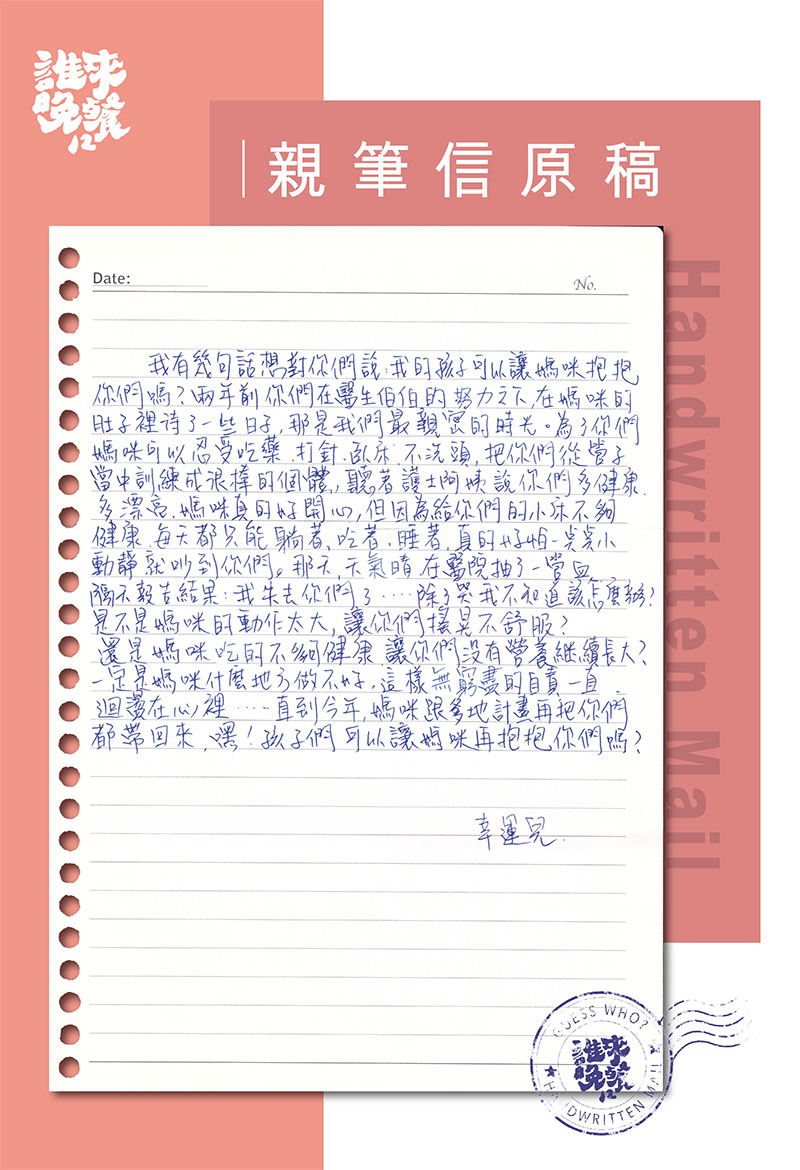 誰來
晚餐
12
親筆信原稿
Handwritten Mail
Date:
No.
我有幾句話想對你們說:我的孩子可以讓媽咪抱抱
你們嗎?兩年前你們在醫生伯伯的努力之下,在媽咪的
肚子裡待了一些日子,那是我們最親密的時光。為了你們
媽咪可以忍受吃藥、打針、臥床、不洗頭,把你們從管子
當中訓練成很棒的個體,聽著護士阿姨說你們多健康、
多漂亮、媽咪真的好開心,但因為給你們的小床不夠
健康、每天都只能躺著、吃著、睡著,真的好怕一點點小
動靜就吵到你們。那天,天氣晴,在醫院抽了一管血
隔天報告結果:我失去你們了‥‥‥除了哭我不知道該怎麼辦?
是不是媽咪的動作太大,讓你們搖晃不舒服?
還是媽咪吃的不夠健康 讓你們沒有營養繼續長大?
一定是媽咪什麼地方做不好,這樣無窮盡的自責一直
迴盪在心裡‥‥直到今年,媽咪跟爹地計畫再把你們
都帶回來,嘿!孩子們可以讓媽咪再抱抱你們嗎?
幸運兒.
GUESS WHO?
誰來
晚餐
12
HANDWRITTEN MAIL